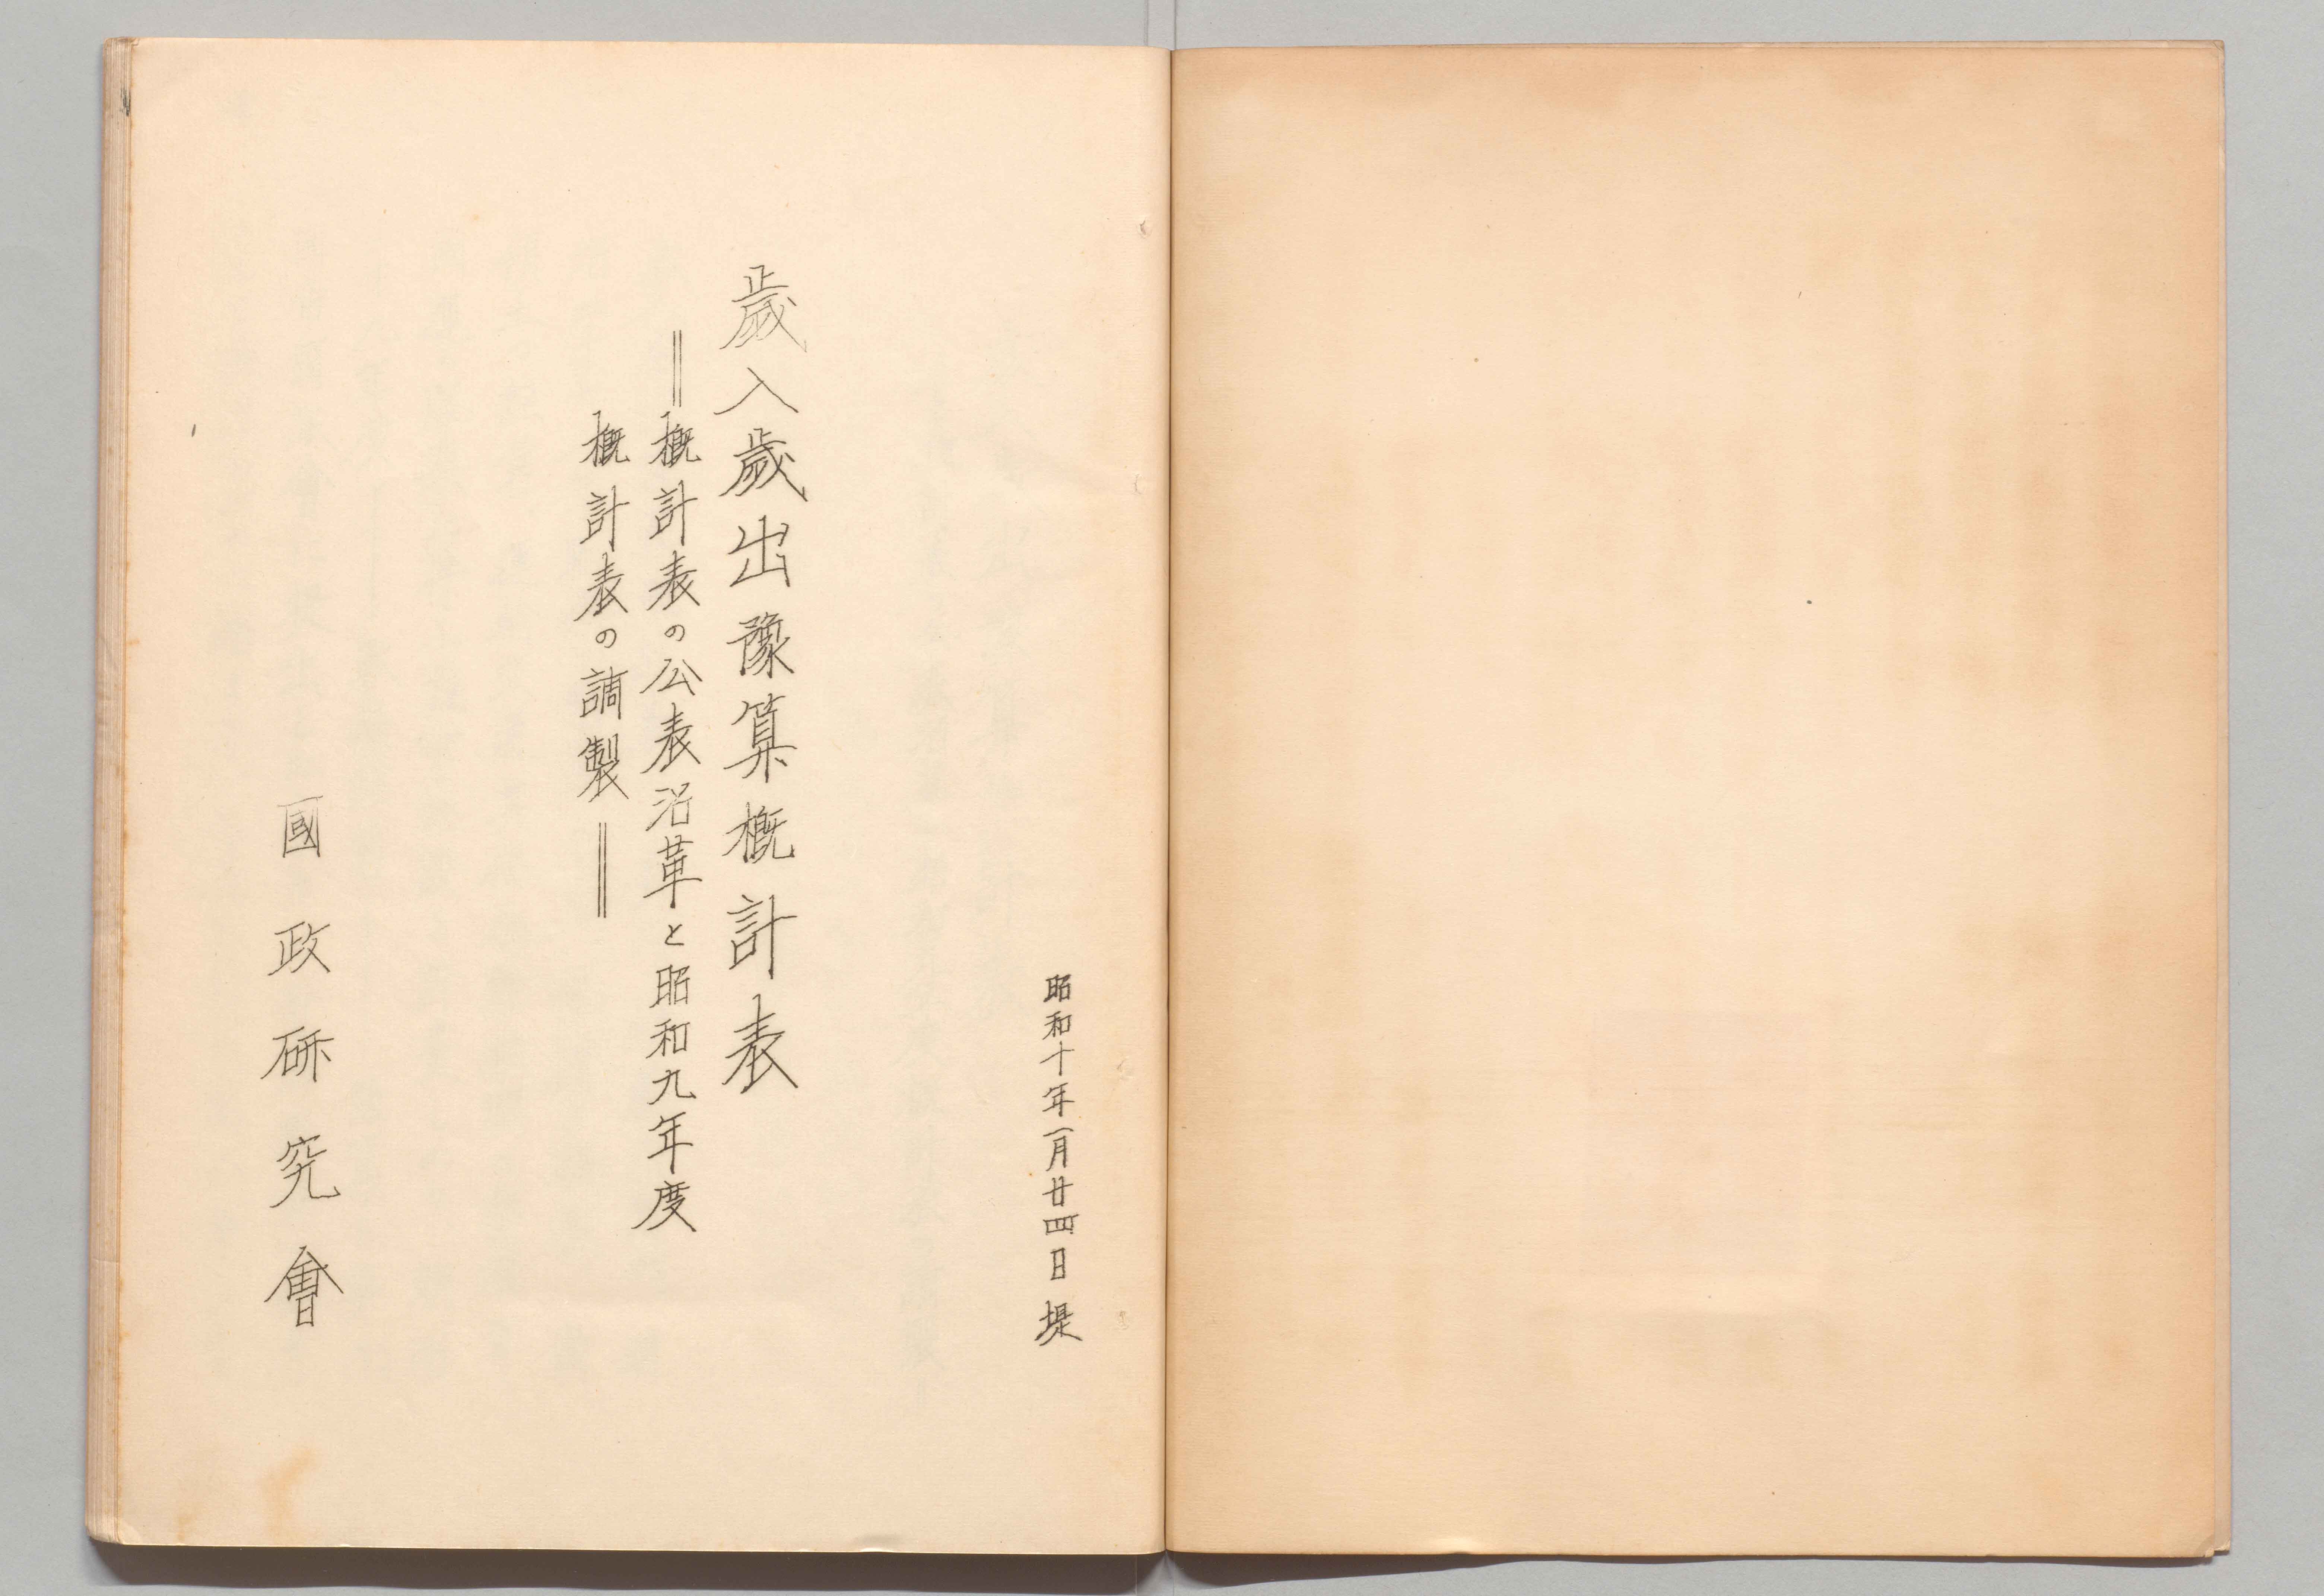 昭和十年一月廿四日 堤
歲入歲出豫算概計表
＝概計表の公表沿革と昭和九年度
概計表の調製＝
國政研究會